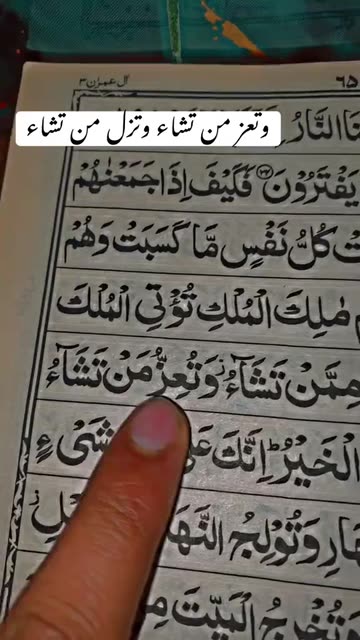 آل عمرٰن ۳
٦٥
وتعز من تشاء وتزل من تشاء
نَا النَّارُ
يَفْتَرُوْنَ ۝۲۴ فَكَيْفَ اِذَا جَمَعْنٰهُمْ
تْ كُلُّ نَفْسٍ مَّا كَسَبَتْ وَهُمْ
مَّ مٰلِكَ الْمُلْكِ تُؤْتِى الْمُلْكَ
مِمَّنْ تَشَآءُ ؗ وَتُعِزُّ مَنْ تَشَآءُ
الْخَيْرُ ؕ اِنَّكَ عَلٰ شَىْءٍ
هَارِ وَتُوْلِجُ النَّهَا لِ ؗ
وَتُخْرِجُ الْمَيِّتَ مِ